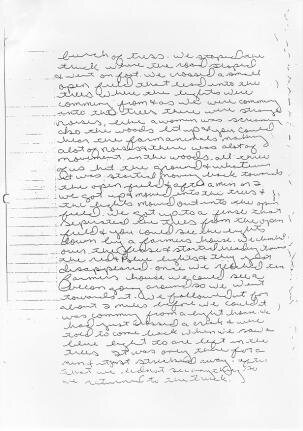 bunch of trees. We stoped our
truck where the road stoped
& went on foot. We crossed a small
open field that lead into the
trees where the lights were
comming from & as we were comming
into the trees there were strange
noises, like a woman was screaming
also the woods lit up & you could
hear the farm animals making
alot of noises & there was alot of
movement in the woods. all three
of us hid the ground & whatever
it was started moving back towards
the open field & after a min or 2
we got up & moved into the trees &
the lights moved out into the open
field. We got up to a fence that
seperated the trees from the open
field & you could see the lights
down by a farmers house. We climbed
over the fence & started walking toward
the red & blue lights & they just
disappeared. once we reached the
farmers house we could see a
beacon going around so we went
towards it. We followed it for
about 2 miles before we could
was comming from a light house. We
had just passed a creek & were
told to come back when we saw a
blue light to our left in the
trees. It was only there for a
min & just streaked away. after
that we didnt see anything &
we returned to the truck.